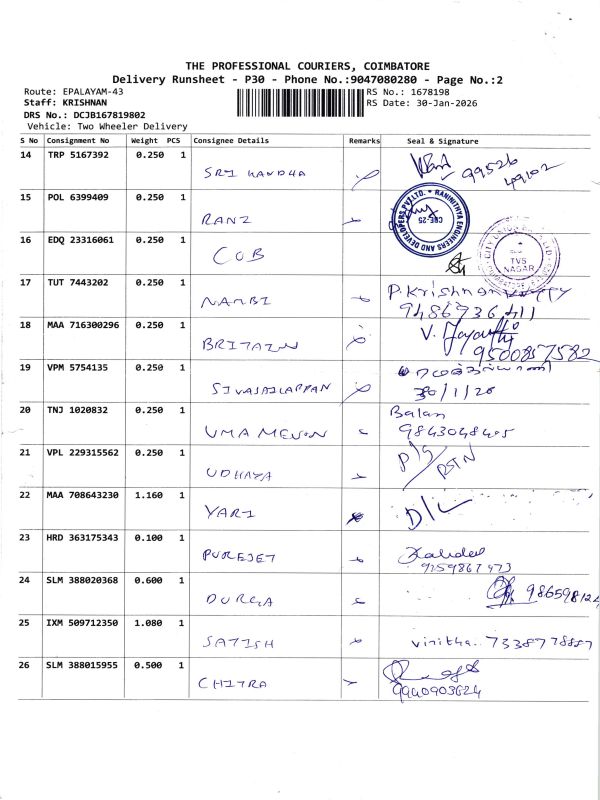 THE PROFESSIONAL COURIERS, COIMBATORE
Delivery Runsheet - P30 - Phone No.:9047080280 - Page No.:2
Route: EPALAYAM-43
RS No.: 1678198
Staff: KRISHNAN
RS Date: 30-Jan-2026
DRS No.: DCJB167819802
Vehicle: Two Wheeler Delivery
S No Consignment No Weight PCS Consignee Details Remarks Seal & Signature
14 TRP 5167392 0.250 1
SRI KANDHA
99526
49102
15 POL 6399409 0.250 1
RANI
RANINITHYA ENGINEERS AND DEVELOPERS PVT.LTD.
CBE-25
16 EDQ 23316061 0.250 1
COB
TVS
NAGAR
17 TUT 7443202 0.250 1
NAMBI
P.Krishnan
9486736411
18 MAA 716300296 0.250 1
BRITAIN
V.
9500857582
19 VPM 5754135 0.250 1
SIVASAILAPPAN
30/1/26
20 TNJ 1020832 0.250 1
UMA MENON
Balan
9843048405
21 VPL 229315562 0.250 1
UDHAYA
22 MAA 708643230 1.160 1
YARI
D/L
23 HRD 363175343 0.100 1
PUREJET
24 SLM 388020368 0.600 1
DURGA
25 IXM 509712350 1.080 1
SATISH
vinitha.. 7338778887
26 SLM 388015955 0.500 1
CHITRA
9940903624